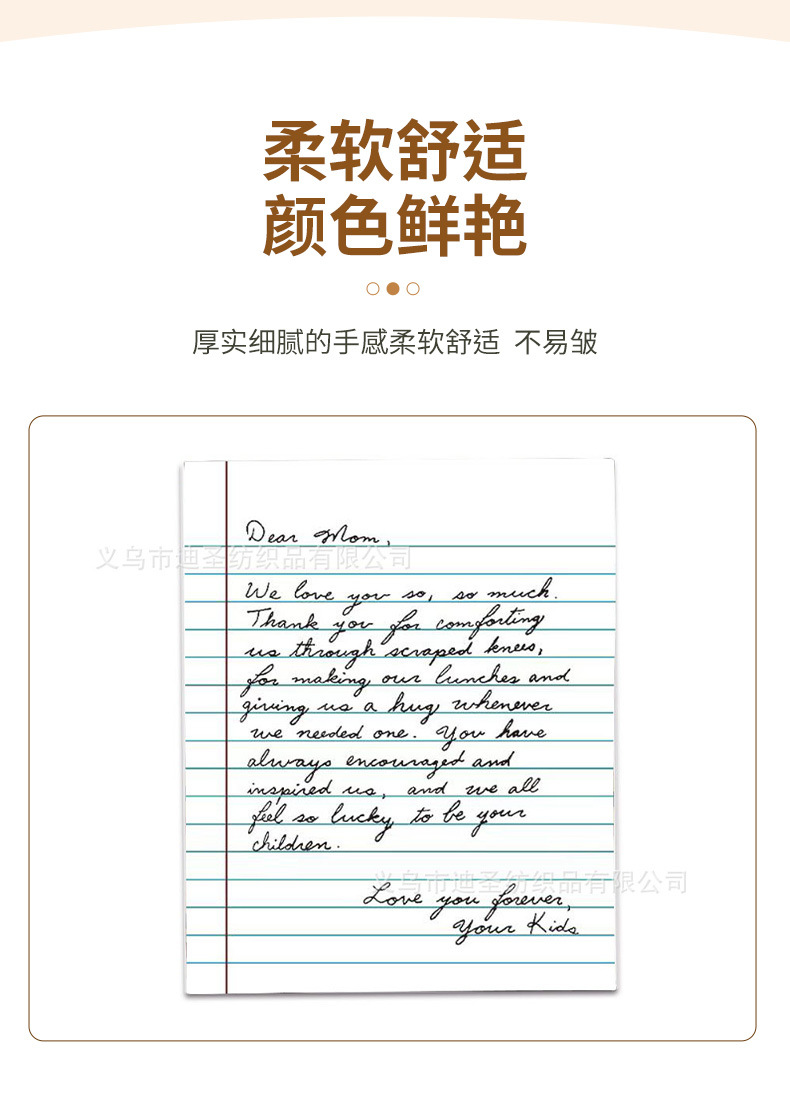 柔软舒适
颜色鲜艳
厚实细腻的手感柔软舒适 不易皱
Dear Mom,
义乌市迪圣纺织品有限公司
We love you so, so much.
Thank you for comforting
us through scraped knees,
for making our lunches and
giving us a hug whenever
we needed one. You have
always encouraged and
inspired us, and we all
feel so lucky to be your
children.
义乌市迪圣纺织品有限公司
Love you forever,
Your Kids